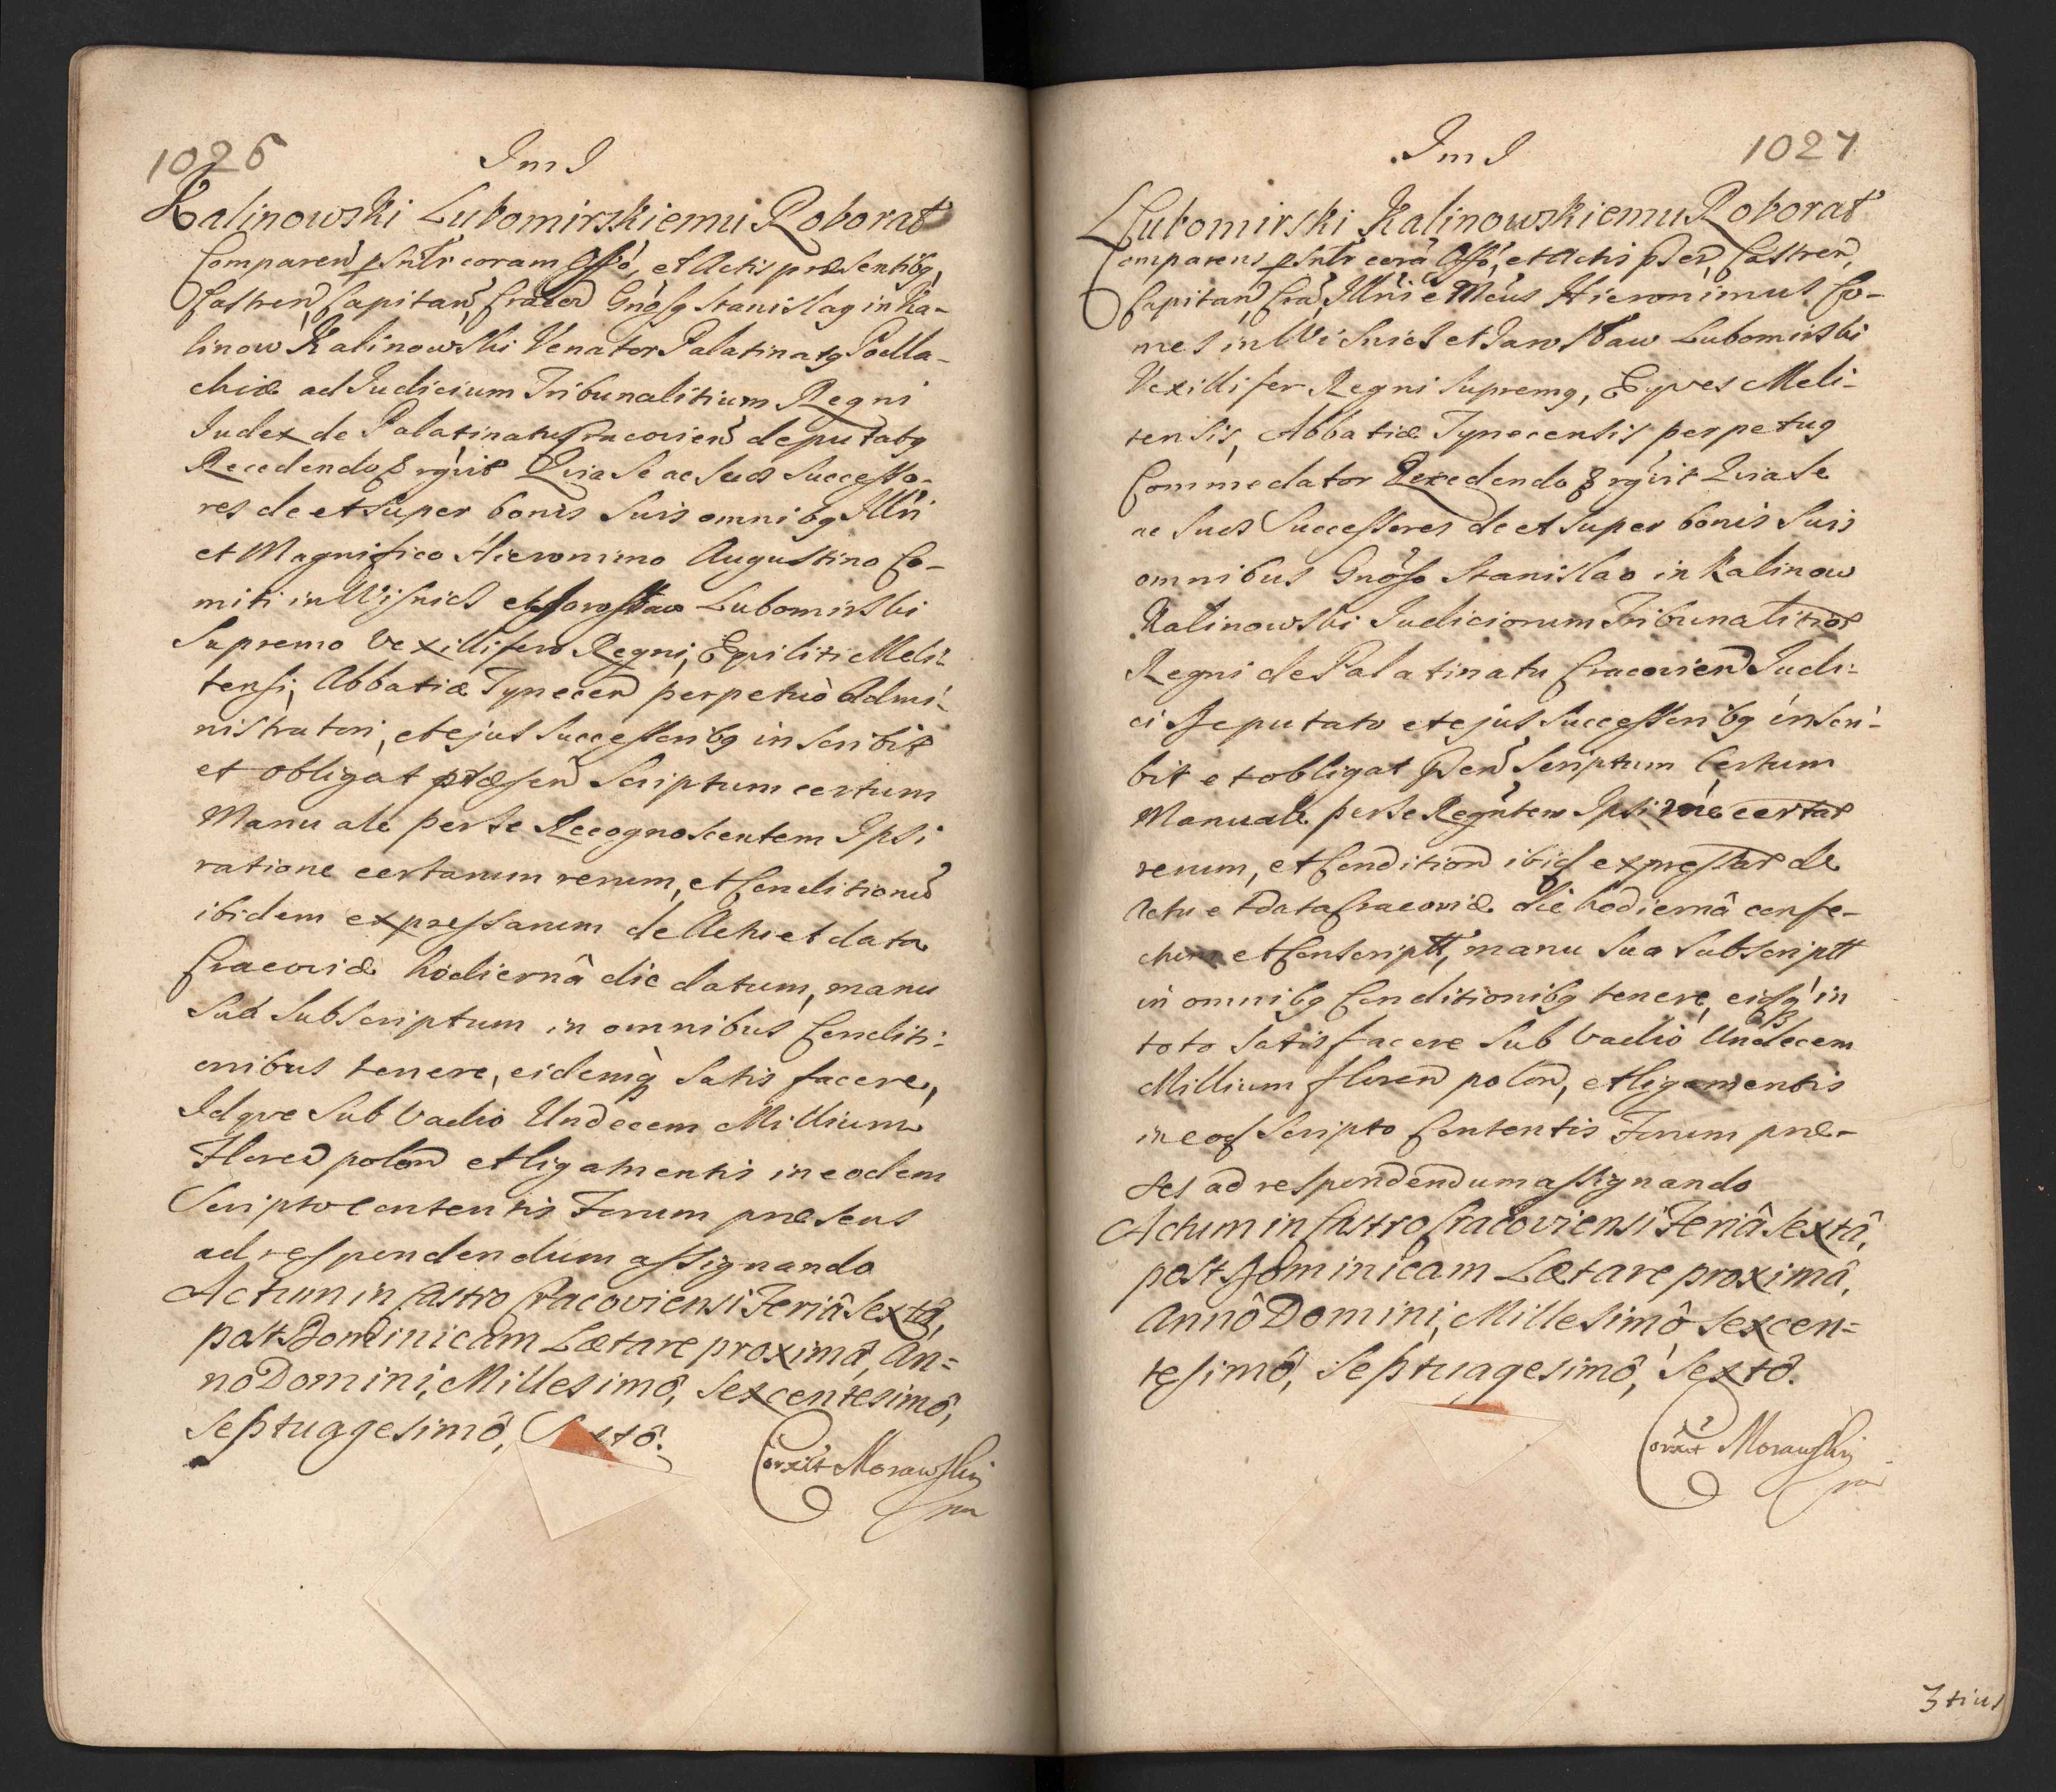 1026
Im I
Kalinowski Lubomirskiemu Roborat
Comparen psnlr coram Offo, et Actis præsentibq,
Castren, Capitan, Cracen Gnosq Stanislaq in Ka-
linow Kalinowski Venator Palatinatq Podla-
chiæ ad Judicium Tribunalitium Regni
Judex de Palatinatu Cracovien deputatq
Recedendo Rgvit Qvia Se ac Suos Successo-
res de et super bonis Suis omnibq Illri
et Magnifico Hieronimo Augustino Co-
miti in Wisnicz et Jarosław Lubomirski
Supremo Vexillifero Regni, Eqviliti Meli-
tensi, Abbatiæ Tynecen perpetuò Admi-
nistratori, et ejus Successoribq inscribit
et obligat præsen Scriptum certum
Manuale per se Recognoscentem Ipsi
ratione certarum rerum, et Conditionu
ibidem expressarum de Actu et data
Cracoviæ hodiernâ die datum, manu
Suâ Subscriptum in omnibus Conditi-
onibus tenere, eidemq Satis facere,
Idqve Sub Vadio Undecem Millium
Floren polon et ligamentis in eodem
Scripto contentis Forum præsens
ad respondendum assignando
Actum in Castro Cracoviensi Feriâ Sextâ,
post Dominicam Lætare proximâ, An=
nô Domini, Millesimô, Sexcentesimô,
Septuagesimô, Sextô.
Corxit Morawski
mp
.Im I
1027
Lubomirski Kalinowskiemu Roborat
Comparens psnlr corã Offo, et Actis psen, Castren,
Capitan, Cra, Illris e Mcus Hieronimus Co-
mes in Wisnicz et Jarosław Lubomirski
Vexillifer Regni Supremq, Eqves Meli-
tensis, Abbatiæ Tynecensis perpetuq
Commedator Recedendo Rgvit Qvia Se
ac Suos Successores de et super bonis Suis
omnibus Gnoso Stanislao in Kalinow
Kalinowski Judiciorum Tribunalitior
Regni de Palatinatu Cracovien Judi-
ci deputato et ejus Successoribq inscri-
bit et obligat psen Scriptum Certum
Manuale per se Regntem Ipsi rne certar
rerum, et Condition ibid expressar de
Actu et data Cracoviæ die hodiernâ confe-
ctum et Conscriptt, manu Sua Subscriptt
in omnibq Conditionibq tenere, eidq in
toto Satisfacere Sub Vadio Undecem
Millium floren polon, et ligamentis
in eod Scripto Contentis Forum præ-
ses ad respondendum assignando
Actum in Castro Cracoviensi Feriâ Sextâ,
post Dominicam Lætare proximâ,
Annô Domini, Millesimô Sexcen=
tesimô, Septuagesimô, Sextô.
Corxit Morawski
mp
3tius